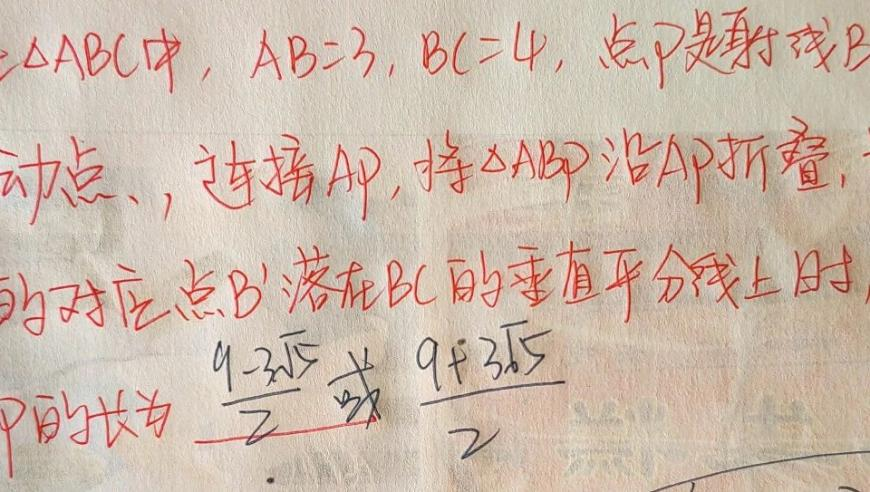 △ABC中, AB=3, BC=4, 点P是射线B
动点、, 连接AP, 将△ABP沿AP折叠,
的对应点B'落在BC的垂直平分线上时,
P的长为 \frac{9-3\sqrt{5}}{2} 或 \frac{9+3\sqrt{5}}{2}